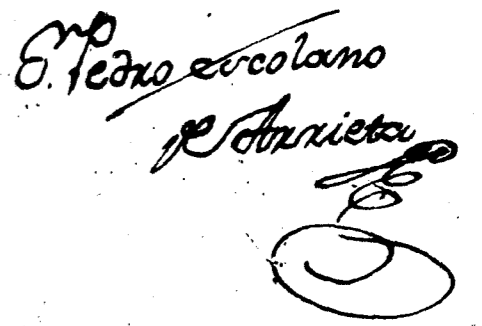 Pedro ercolano
de Arrieta